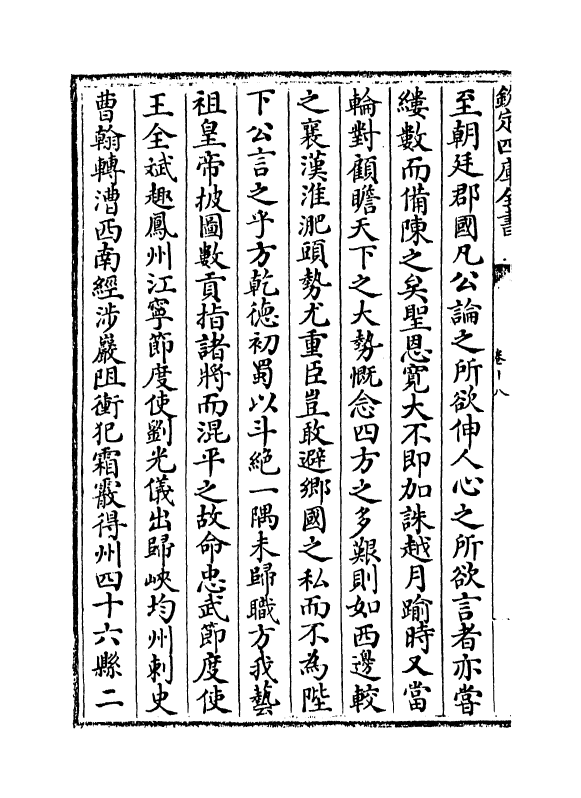 欽定四庫全書
卷十八
至朝廷郡國凡公論之所欲伸人心之所欲言者亦嘗
縷數而備陳之矣聖恩寛大不即加誅越月踰時又當
輪對顧瞻天下之大勢慨念四方之多艱則如西邊較
之襄漢淮淝頭勢尤重臣豈敢避鄉國之私而不為陛
下公言之乎方乾徳初蜀以斗絶一隅未歸職方我藝
祖皇帝披圖數貢指諸將而混平之故命忠武節度使
王全斌趣鳳州江寧節度使劉光儀出歸峽均州刺史
曹翰轉漕西南經涉巖阻衝犯霜霰得州四十六縣二